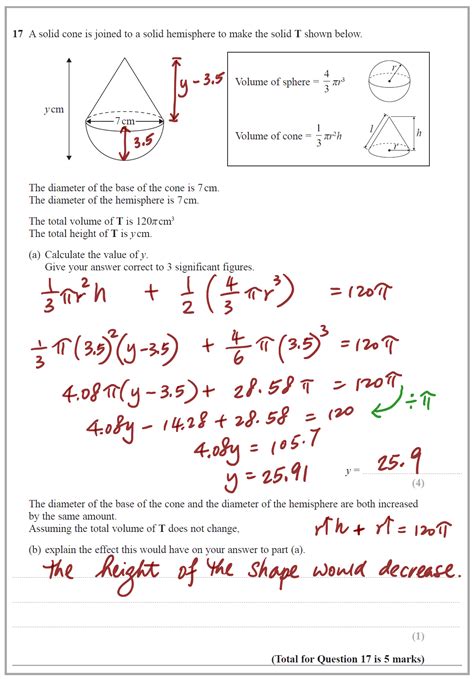 17 A solid cone is joined to a solid hemisphere to make the solid T shown below.
y cm
7 cm
3.5
y - 3.5
Volume of sphere = 4/3 πr³
r
Volume of cone = 1/3 πr²h
l
h
r
The diameter of the base of the cone is 7 cm.
The diameter of the hemisphere is 7 cm.
The total volume of T is 120π cm³
The total height of T is y cm.
(a) Calculate the value of y.
Give your answer correct to 3 significant figures.
1/3 πr²h + 1/2 (4/3 πr³) = 120π
1/3 π(3.5)²(y-3.5) + 4/6 π(3.5)³ = 120π
4.08π(y - 3.5) + 28.58π = 120π
÷π
4.08y - 14.28 + 28.58 = 120
4.08y = 105.7
y = 25.91
y = 25.9
(4)
The diameter of the base of the cone and the diameter of the hemisphere are both increased
by the same amount.
Assuming the total volume of T does not change,
r↑h + r↑ = 120π
(b) explain the effect this would have on your answer to part (a).
the height of the shape would decrease.
(1)
(Total for Question 17 is 5 marks)